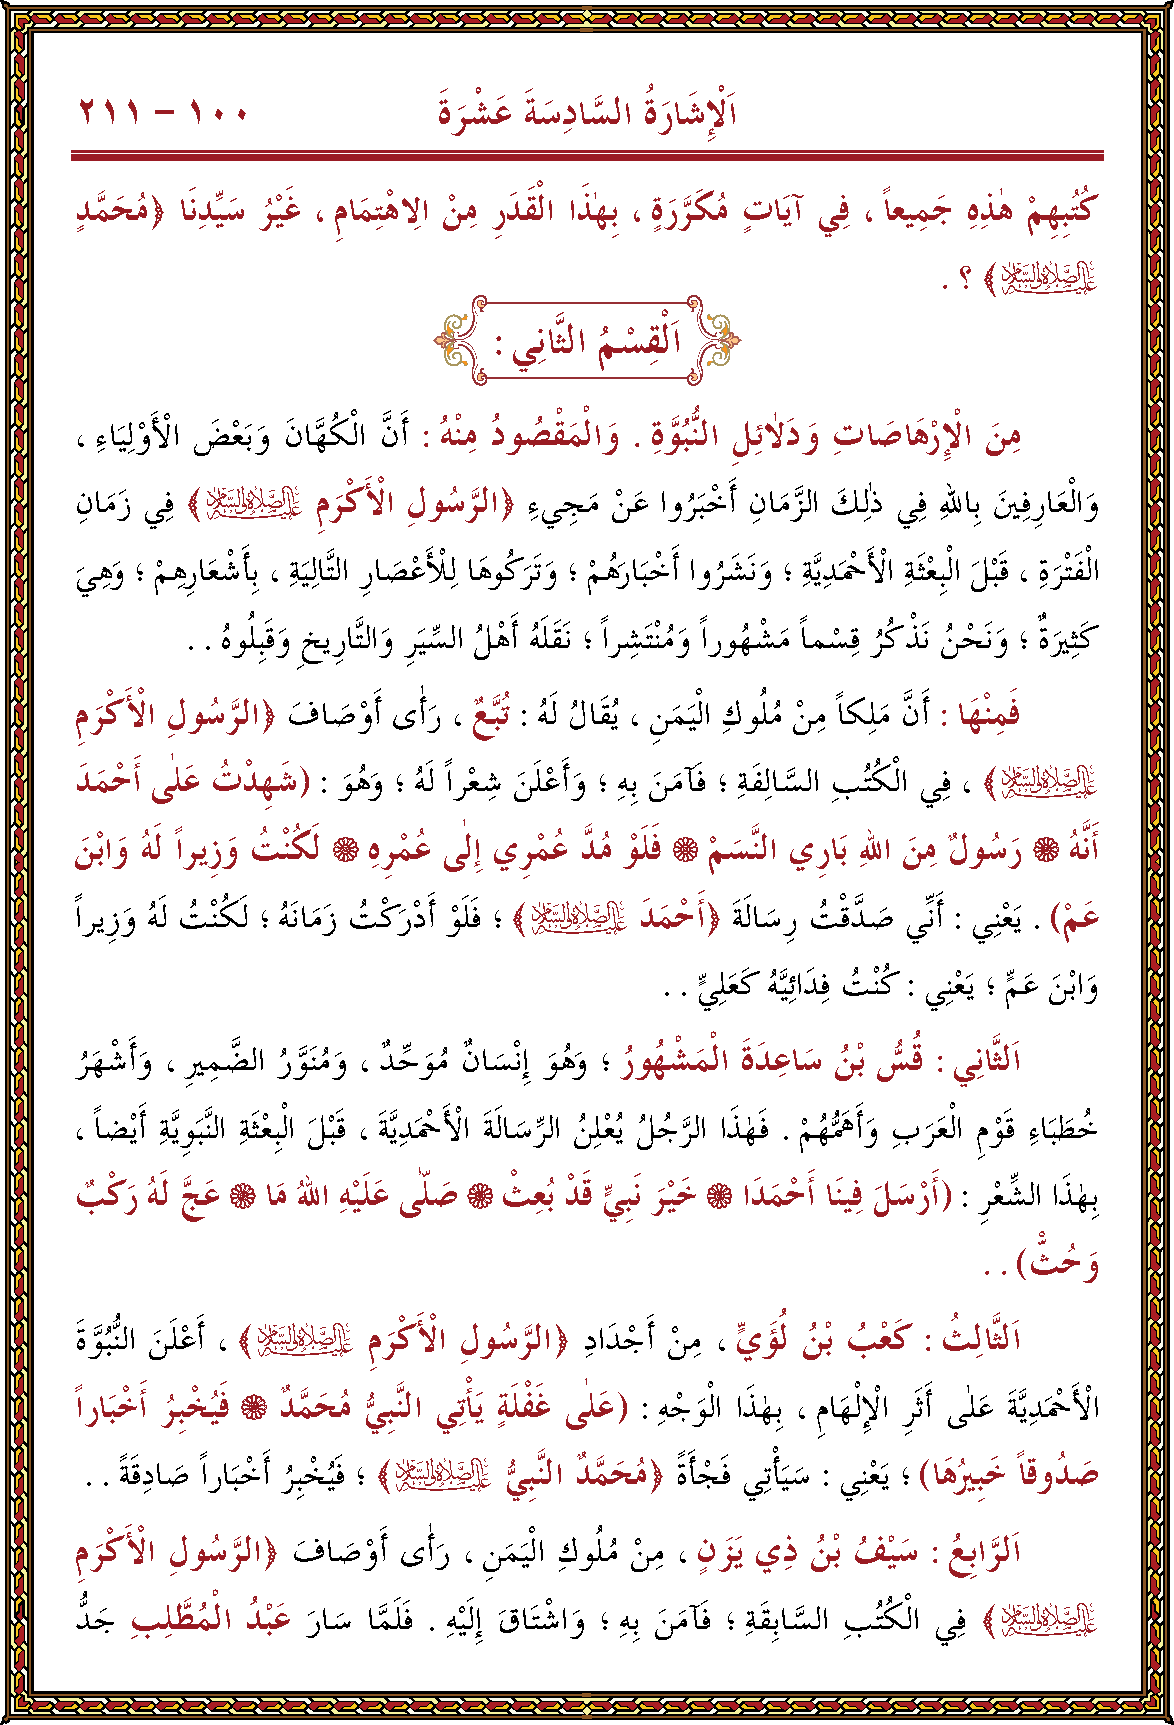 اَلْإِشَارَةُ السَّادِسَةَ عَشْرَةَ ١٠٠ – ٢١١
كُتُبِهِمْ هٰذِهِ جَمِيعاً ، فِي آيَاتٍ مُكَرَّرَةٍ ، بِهٰذَا الْقَدَرِ مِنْ الِاهْتِمَامِ ، غَيْرُ سَيِّدِنَا ﴿مُحَمَّدٍ
عَلَيْهِ الصَّلَاةُ وَالسَّلَامُ﴾ ؟ .
اَلْقِسْمُ الثَّانِي :
مِنَ الْإِرْهَاصَاتِ وَدَلَائِلِ النُّبُوَّةِ . وَالْمَقْصُودُ مِنْهُ : أَنَّ الْكُهَّانَ وَبَعْضَ الْأَوْلِيَاءِ ،
وَالْعَارِفِينَ بِاللهِ فِي ذٰلِكَ الزَّمَانِ أَخْبَرُوا عَنْ مَجِيءِ ﴿الرَّسُولِ الْأَكْرَمِ عَلَيْهِ الصَّلَاةُ وَالسَّلَامُ﴾ فِي زَمَانِ
الْفَتْرَةِ ، قَبْلَ الْبِعْثَةِ الْأَحْمَدِيَّةِ ؛ وَنَشَرُوا أَخْبَارَهُمْ ؛ وَتَرَكُوهَا لِلْأَعْصَارِ التَّالِيَةِ ، بِأَشْعَارِهِمْ ؛ وَهِيَ
كَثِيرَةٌ ؛ وَنَحْنُ نَذْكُرُ قِسْماً مَشْهُوراً وَمُنْتَشِراً ؛ نَقَلَهُ أَهْلُ السِّيَرِ وَالتَّارِيخِ وَقَبِلُوهُ . .
فَمِنْهَا : أَنَّ مَلِكاً مِنْ مُلُوكِ الْيَمَنِ ، يُقَالُ لَهُ : تُبَّعٌ ، رَأٰى أَوْصَافَ ﴿الرَّسُولِ الْأَكْرَمِ
عَلَيْهِ الصَّلَاةُ وَالسَّلَامُ﴾ ، فِي الْكُتُبِ السَّالِفَةِ ؛ فَآمَنَ بِهِ ؛ وَأَعْلَنَ شِعْراً لَهُ ؛ وَهُوَ : (شَهِدْتُ عَلٰى أَحْمَدَ
أَنَّهُ ۞ رَسُولٌ مِنَ اللهِ بَارِي النَّسَمْ ۞ فَلَوْ مُدَّ عُمْرِي إِلٰى عُمْرِهِ ۞ لَكُنْتُ وَزِيراً لَهُ وَابْنَ
عَمْ) . يَعْنِي : أَنِّي صَدَّقْتُ رِسَالَةَ ﴿أَحْمَدَ عَلَيْهِ الصَّلَاةُ وَالسَّلَامُ﴾ ؛ فَلَوْ أَدْرَكْتُ زَمَانَهُ ؛ لَكُنْتُ لَهُ وَزِيراً
وَابْنَ عَمٍّ ؛ يَعْنِي : كُنْتُ فِدَائِيَّهُ كَعَلِيٍّ . .
اَلثَّانِي : قُسُّ بْنُ سَاعِدَةَ الْمَشْهُورُ ؛ وَهُوَ إِنْسَانٌ مُوَحِّدٌ ، وَمُنَوَّرُ الضَّمِيرِ ، وَأَشْهَرُ
خُطَبَاءِ قَوْمِ الْعَرَبِ وَأَهَمُّهُمْ . فَهٰذَا الرَّجُلُ يُعْلِنُ الرِّسَالَةَ الْأَحْمَدِيَّةَ ، قَبْلَ الْبِعْثَةِ النَّبَوِيَّةِ أَيْضاً ،
بِهٰذَا الشِّعْرِ : (أَرْسَلَ فِينَا أَحْمَدَا ۞ خَيْرَ نَبِيٍّ قَدْ بُعِثْ ۞ صَلّٰى عَلَيْهِ اللهُ مَا ۞ عَجَّ لَهُ رَكْبٌ
وَحُثّْ) . .
اَلثَّالِثُ : كَعْبُ بْنُ لُؤَيٍّ ، مِنْ أَجْدَادِ ﴿الرَّسُولِ الْأَكْرَمِ عَلَيْهِ الصَّلَاةُ وَالسَّلَامُ﴾ ، أَعْلَنَ النُّبُوَّةَ
الْأَحْمَدِيَّةَ عَلٰى أَثَرِ الْإِلْهَامِ ، بِهٰذَا الْوَجْهِ : (عَلٰى غَفْلَةٍ يَأْتِي النَّبِيُّ مُحَمَّدٌ ۞ فَيُخْبِرُ أَخْبَاراً
صَدُوقاً خَبِيرُهَا) ؛ يَعْنِي : سَيَأْتِي فَجْأَةً ﴿مُحَمَّدٌ النَّبِيُّ عَلَيْهِ الصَّلَاةُ وَالسَّلَامُ﴾ ؛ فَيُخْبِرُ أَخْبَاراً صَادِقَةً . .
اَلرَّابِعُ : سَيْفُ بْنُ ذِي يَزَنٍ ، مِنْ مُلُوكِ الْيَمَنِ ، رَأٰى أَوْصَافَ ﴿الرَّسُولِ الْأَكْرَمِ
عَلَيْهِ الصَّلَاةُ وَالسَّلَامُ﴾ فِي الْكُتُبِ السَّابِقَةِ ؛ فَآمَنَ بِهِ ؛ وَاشْتَاقَ إِلَيْهِ . فَلَمَّا سَارَ عَبْدُ الْمُطَّلِبِ جَدُّ